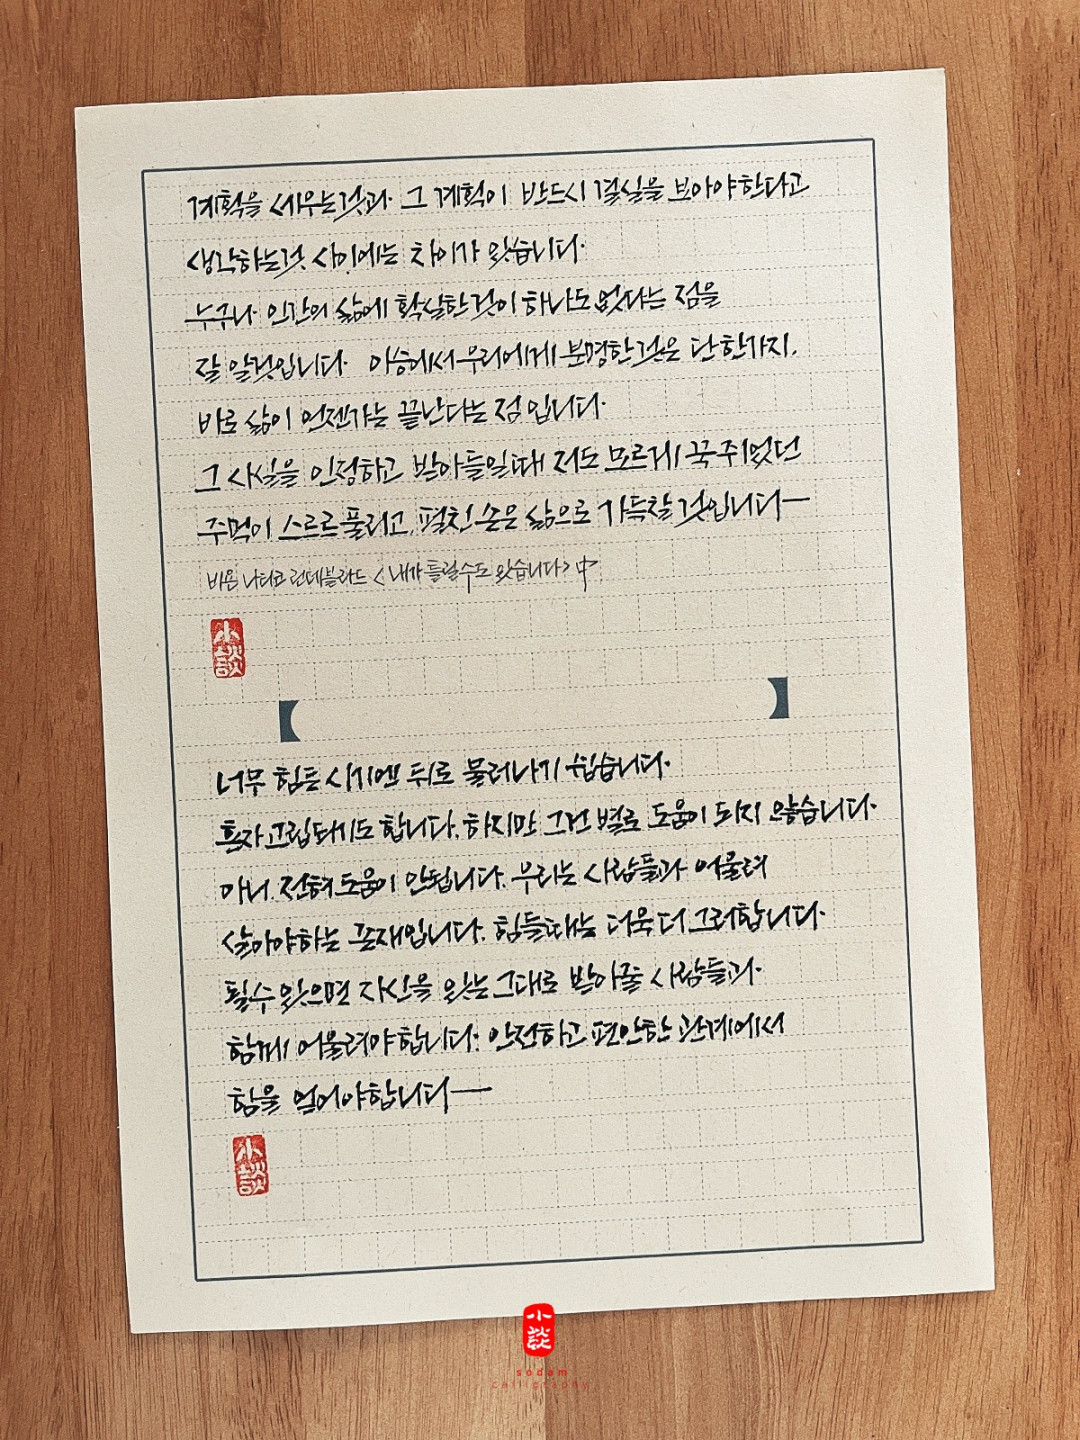 계획을 세우는것과 그 계획이 반드시 결실을 보아야한다고
생각하는것 사이에는 차이가 있습니다.
누구나 인간의 삶에 확실한것이 하나도 없다는 점을
잘 알것입니다. 이승에서 우리에게 분명한것은 단 한가지,
바로 삶이 언젠가는 끝난다는 점입니다.
그 사실을 인정하고 받아들일때 저도 모르게 꾹 쥐었던
주먹이 스르르 풀리고, 펼친 손은 삶으로 가득찰것입니다—
비욘 나티코 린데블라드 <내가 틀릴수도 있습니다> 中
小談
너무 힘든 시기엔 뒤로 물러나기 쉽습니다.
혼자 고립되기도 합니다. 하지만 그건 별로 도움이 되지 않습니다.
아니, 전혀 도움이 안됩니다. 우리는 사람들과 어울려
살아야하는 존재입니다. 힘들때는 더욱 더 그러합니다.
될수있으면 자신을 있는 그대로 받아줄 사람들과
함께 어울려야합니다. 안전하고 편안한 관계에서
힘을 얻어야합니다—
小談
小談
sodam
calligraphy